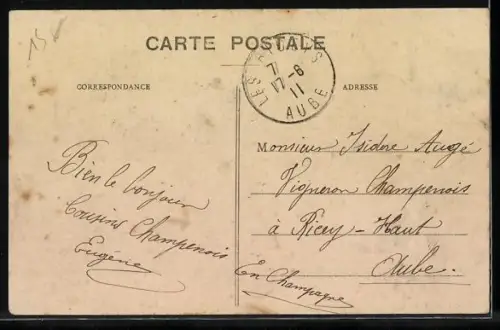 15
CARTE POSTALE
CORRESPONDANCE
LES RICEYS
7
17-6
11
AUBE
ADRESSE
Bien le bonjour
Cousins Champenois
Eugénie
Monsieur Isidore Augé
Vigneron Champenois
à Ricey-Haut
Aube.
En Champagne